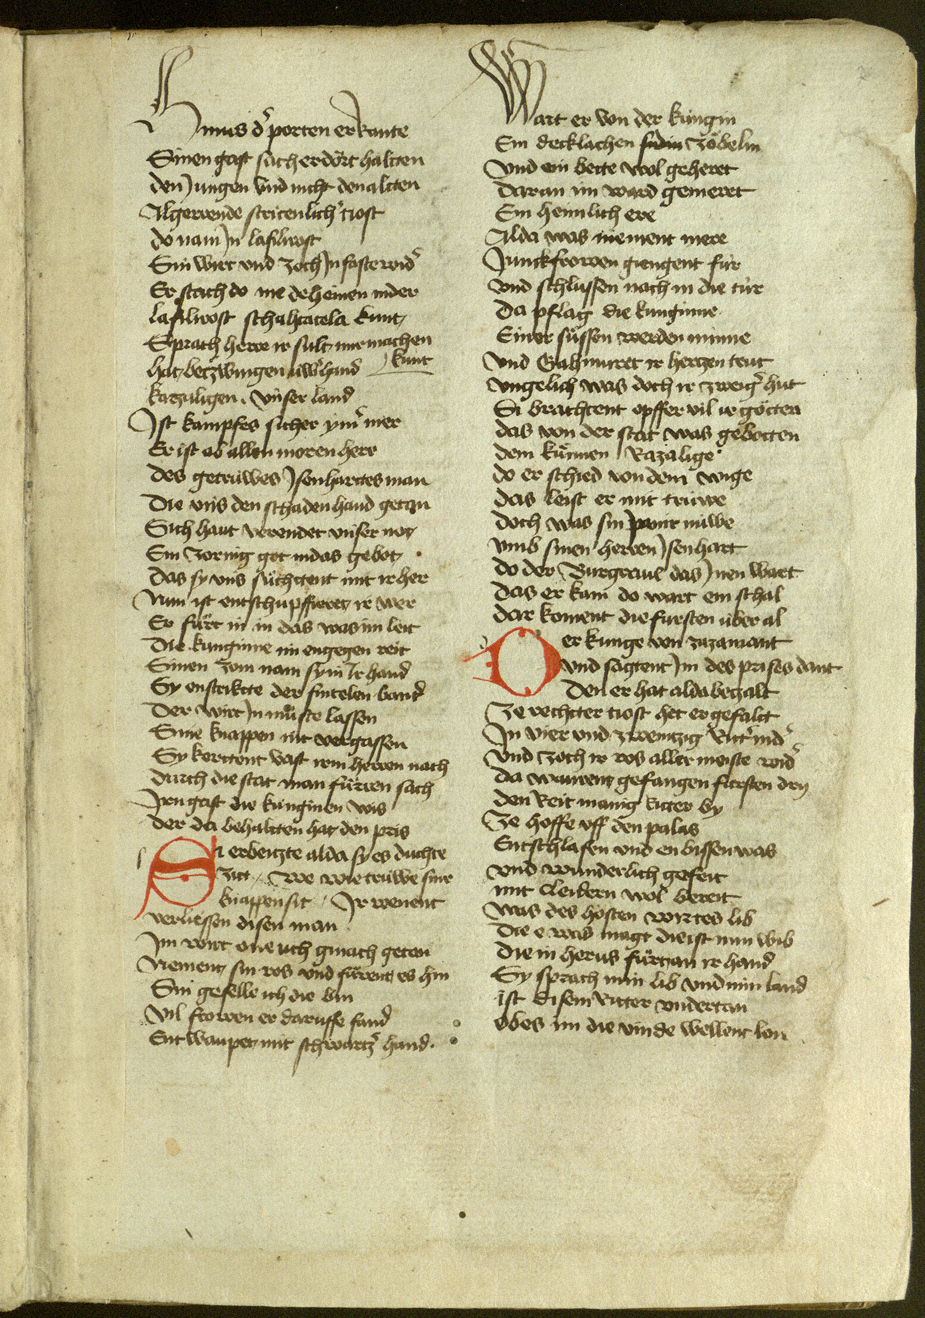 Hinus dˀ porten erkante
Sinen gast sach er dort haltten
den Jungen vnd nicht den altten
Algerende stritenlichˀ tiost
do nam Jn lasilirost
Sin wirt vnd zoch Jn faste widˀ
Er stach do me deheinen nider
lasilirost schahtatela kunt
Sprach herre ir sult mir machen
kunt
hat betzwungen uwˀ hand
Razaligen vnser land
Ist kampfes sicher ymˀ mer
Er ist ob allen moren herr
Des getruwes Jsenharttes man
Die vns den schaden hand getan
Sich haut verendet vnser not
Ein zornig got in das gebot
Das sy vns suchttent mit ir her
Nun ist entschupffieret ir wer
Er furt in in das was im leit
Die kunginne im engegen reit
Sinen zom nam sy in Ir hand
Sy enstrickte der fintelen band
Der wirt Jn muste lassen
Sine knappen nit vergassen
Sy kerttent vast irm herren nach
durch die stat man furren sach
Irn gast die kunginen wis
der da behaltten hat den pris
Si erbeitzte alda sy es duchte
zitt we wie truwe sint
knappen sit Ir wenent
verliessen disen man
Im wirt one uch gmach getan
Nement sin ros vnd furent es hin
Sin geselle ich die bin
vil frowen er daruffe fand
Entwaupet mit schwartzˀ hand
Wart er von der kungin
Ein decklachen sindin zobelin
Vnd ein bette wol geheret
Daran im ward gemeret
Ein heimlich ere
Alda was niement mere
Junckfrowen giengent fur
Vnd schlussen nach in die tur
Da pflag die kunginne
Einer sussen werden minne
Vnd Gahmuret ir hertzen trut
vngelich was doch ir zweigˀ hut
Si brachtent opffer vil ir gotten
das von der stat was gebotten
dem kunnen Razalige
do er schied von dem wige
das leist er mit truwe
Doch was sin Jamer nuwe
vmb sinen herren Jsenhart
do der Burgraue das Jnen wart
Das er kam do wart ein schal
dar koment die fursten uber al
Der kunge von zazamant
Vnd sagtent Jm des prises dant
Den er hat alda bezalt
Ze rechtter tiost het er gefalt
Jn vier vnd zwentzigˀ Rittˀ nidˀ
Vnd zoch ir ros aller meiste widˀ
Da wurent gefangen fursten dry
den Reit manig Ritter by
Ze hoffe uff den palas
Entschlafen vnd enbissen was
vnd wunderlich gefeit
mit cleidern wol bereit
was des hosten wirtes lib
Die e was magt die ist nun wib
die in herus furt an ir hand
Sy sprach min lib vnd min land
ist disem Ritter vndertan
ob es im die vinde wellent lon